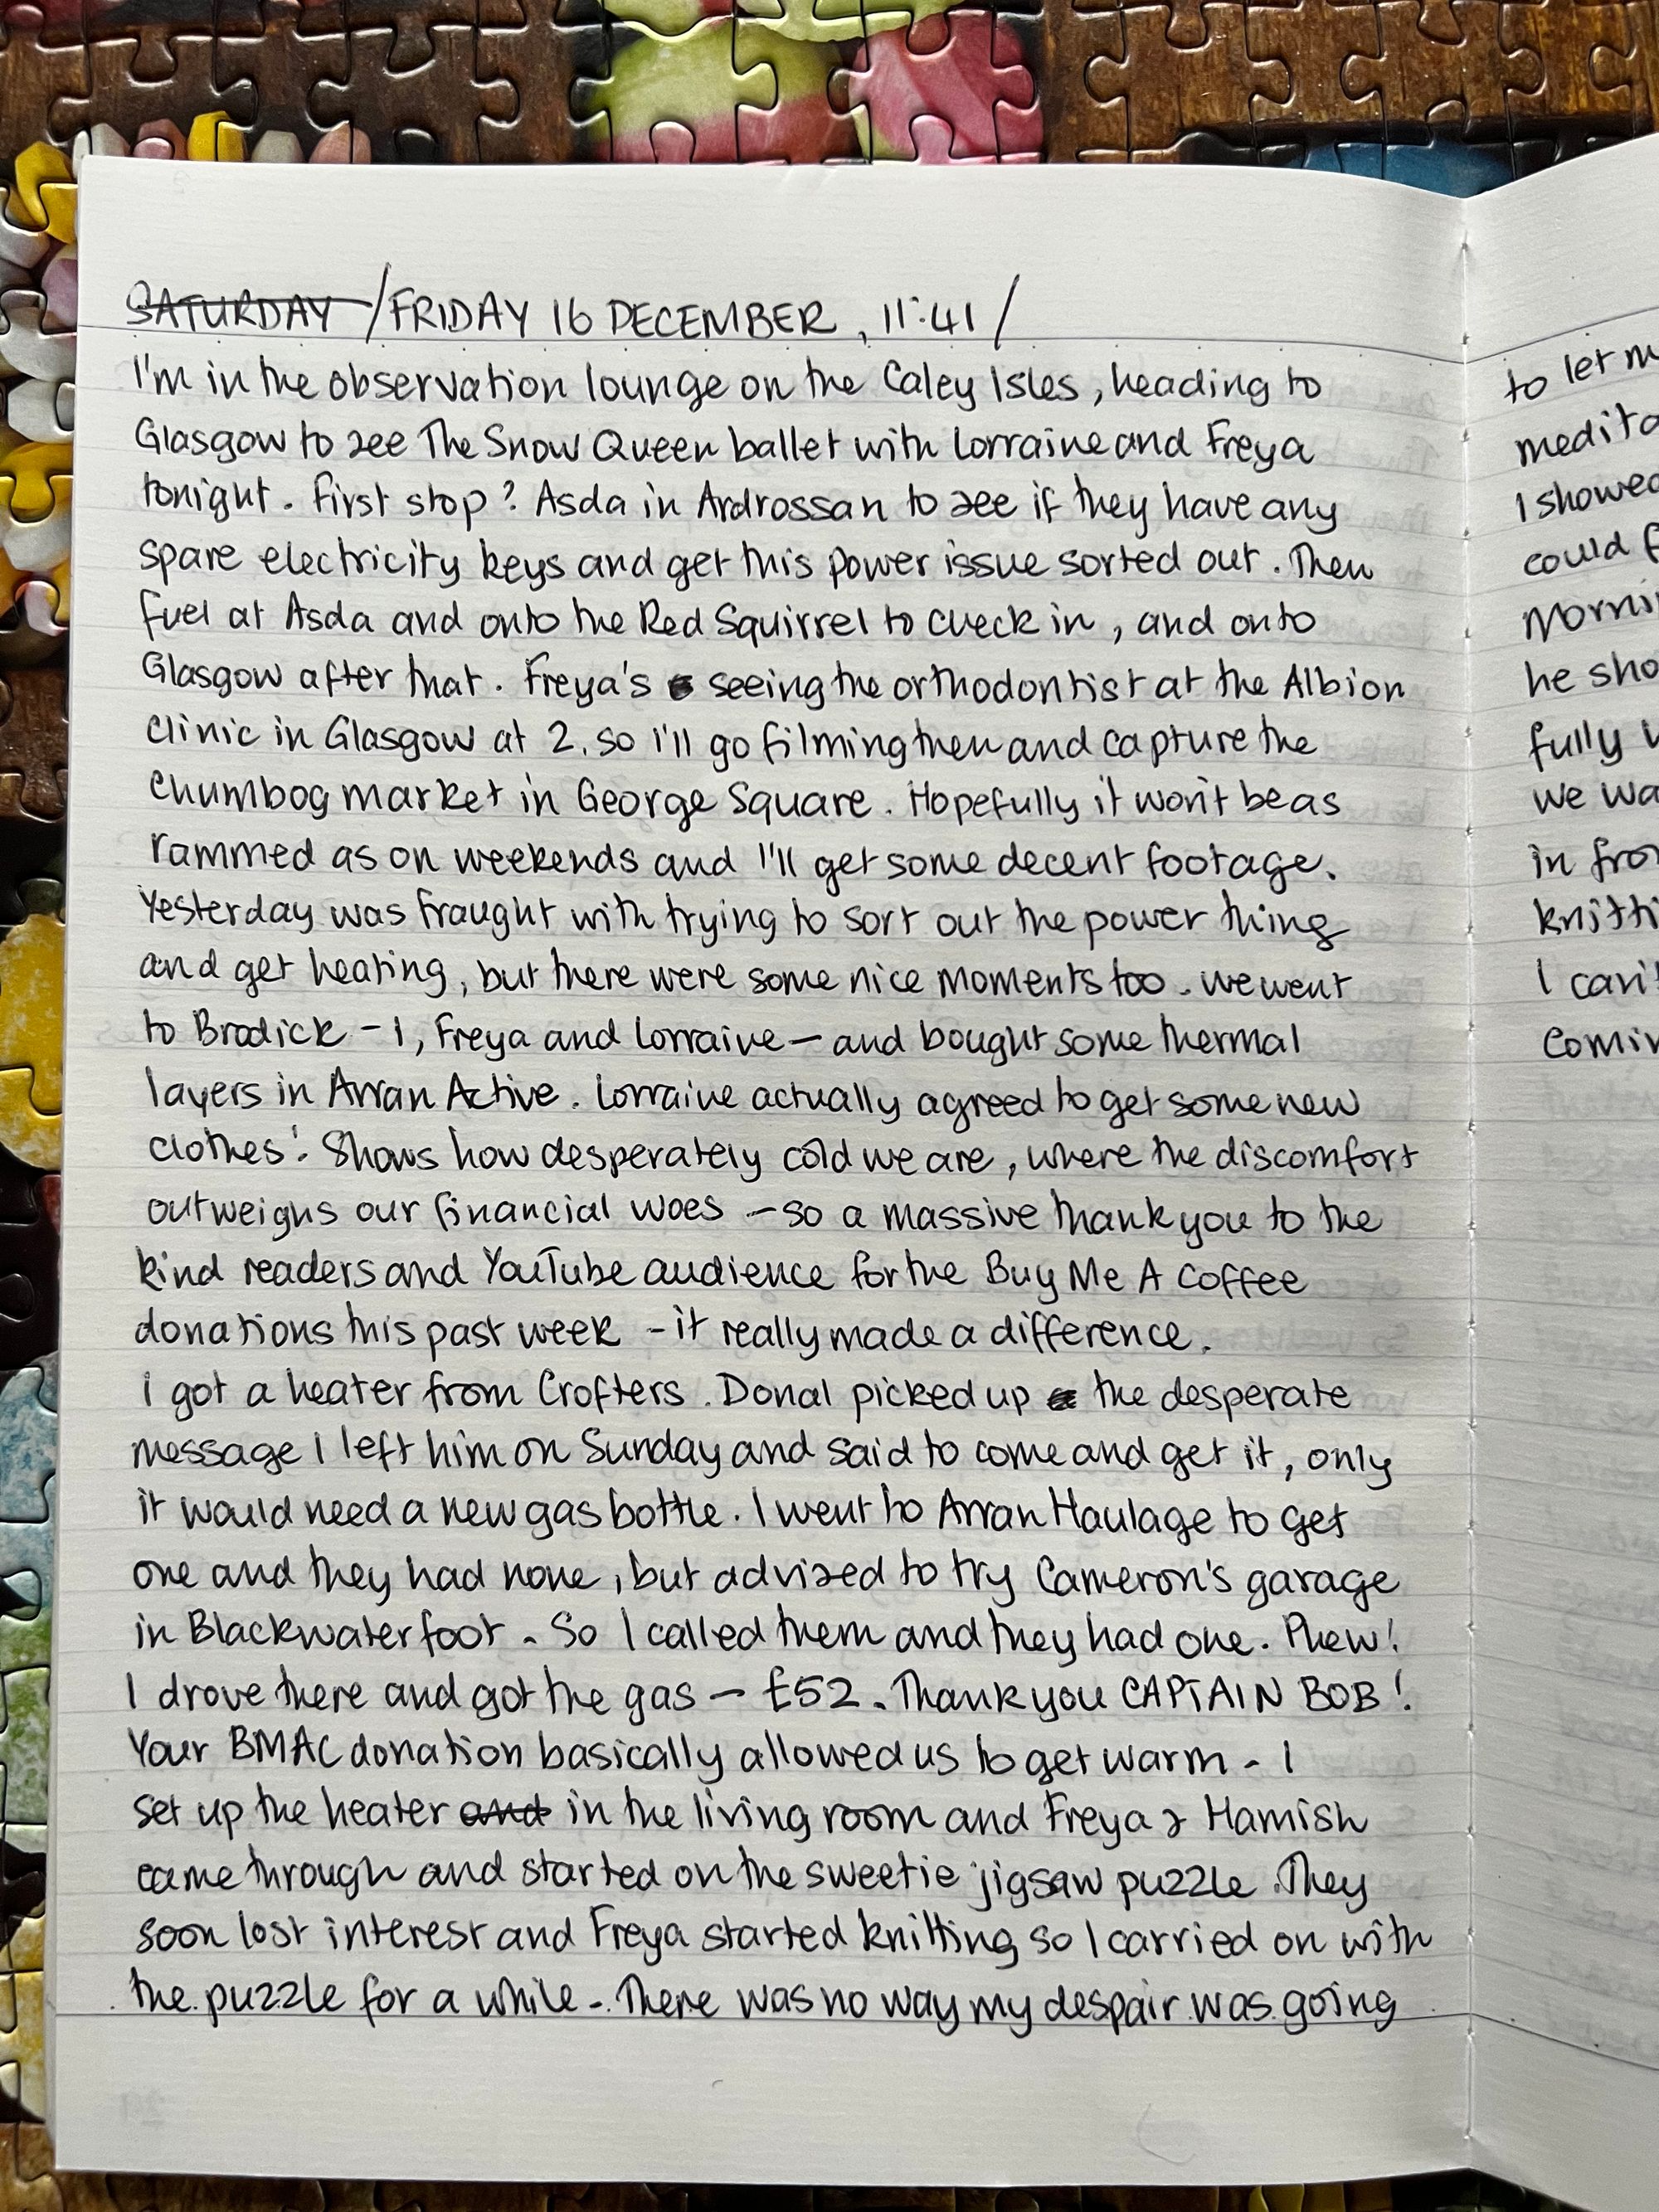 SATURDAY / FRIDAY 16 DECEMBER, 11:41 /
I'm in the observation lounge on the Caley Isles, heading to
Glasgow to see The Snow Queen ballet with Lorraine and Freya
tonight. First stop? Asda in Ardrossan to see if they have any
spare electricity keys and get this power issue sorted out. Then
fuel at Asda and onto the Red Squirrel to check in, and onto
Glasgow after that. Freya's seeing the orthodontist at the Albion
Clinic in Glasgow at 2, so I'll go filming then and capture the
Chumbog market in George Square. Hopefully it won't be as
rammed as on weekends and I'll get some decent footage.
Yesterday was fraught with trying to sort out the power thing
and get heating, but there were some nice moments too. We went
to Brodick - I, Freya and Lorraine - and bought some thermal
layers in Arran Active. Lorraine actually agreed to get some new
clothes! Shows how desperately cold we are, where the discomfort
outweighs our financial woes - so a massive thank you to the
kind readers and YouTube audience for the Buy Me A Coffee
donations this past week - it really made a difference.
I got a heater from Crofters. Donal picked up the desperate
message I left him on Sunday and said to come and get it, only
it would need a new gas bottle. I went to Arran Haulage to get
one and they had none, but advised to try Cameron's garage
in Blackwaterfoot. So I called them and they had one. Phew!
I drove there and got the gas - £52. Thank you CAPTAIN BOB!
Your BMAC donation basically allowed us to get warm - I
set up the heater and in the living room and Freya & Hamish
came through and started on the sweetie jigsaw puzzle. They
soon lost interest and Freya started knitting so I carried on with
the puzzle for a while. There was no way my despair was going
to let m
medita
I showed
could f
Morni
he sho
fully
we wa
in fro
knitti
I can't
comin